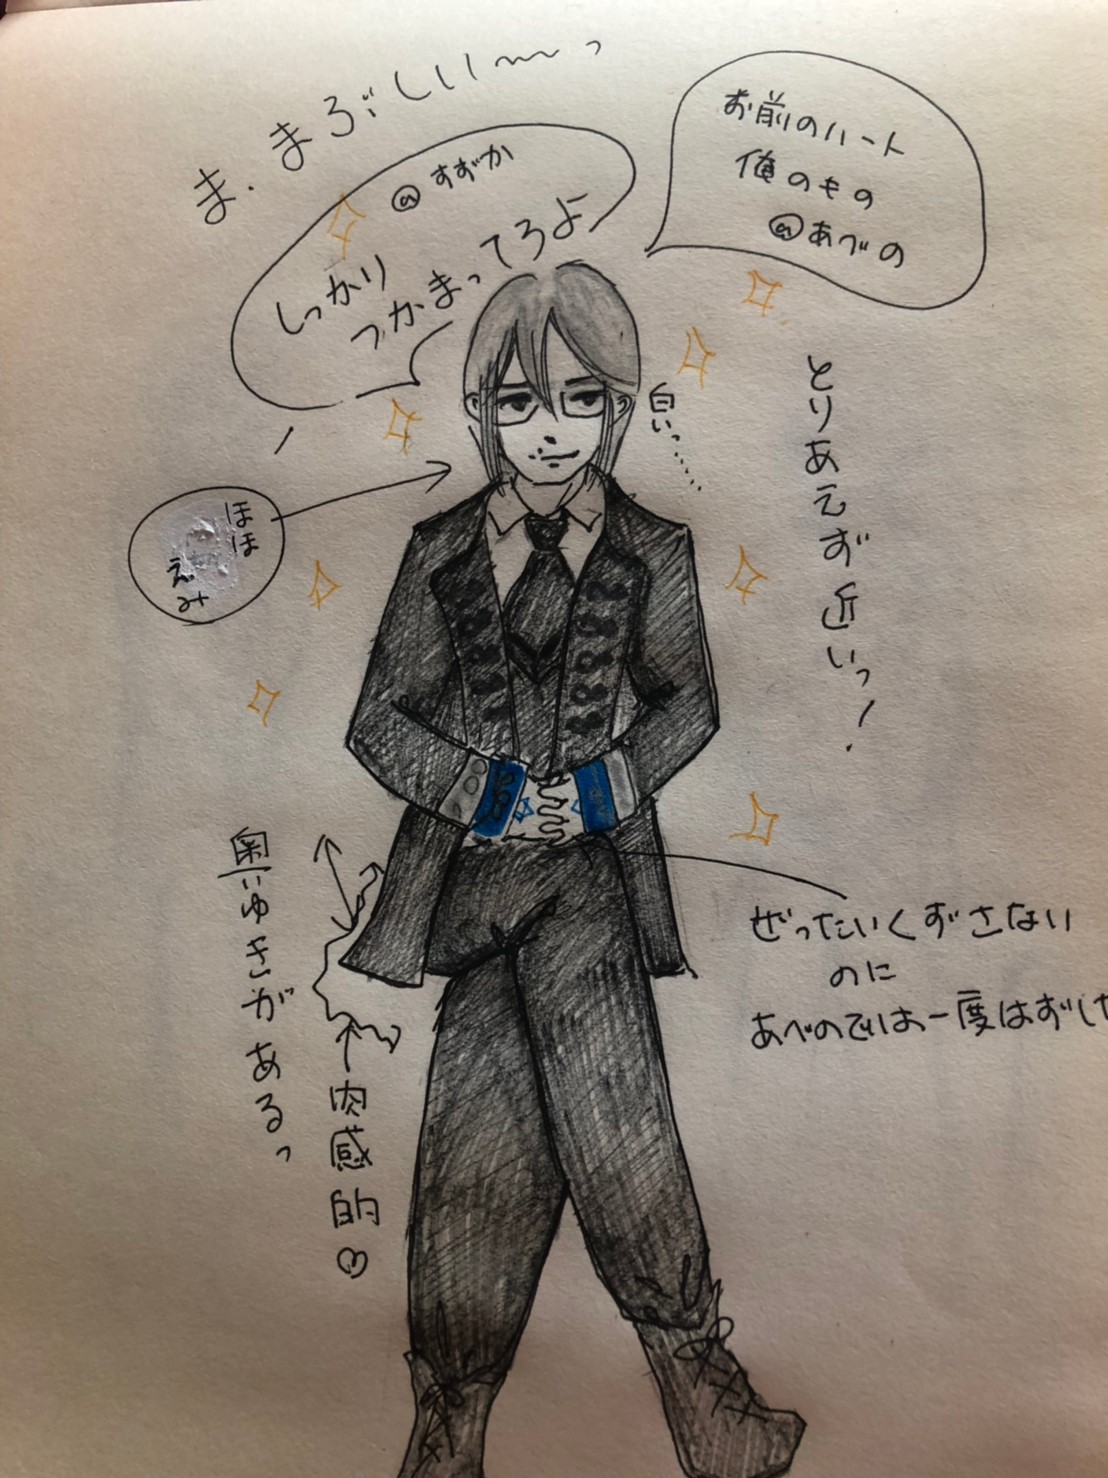 ま、まぶしい〜〜っ
お前のハート
俺のもの
@あべの
@すずか
しっかり
つかまってろよ
白いっ……
とりあえず近いっ!
ほほ
えみ
奥ゆきがあるっ
肉感的♡
ぜったいくずさない
のに
あべのでは一度はずした